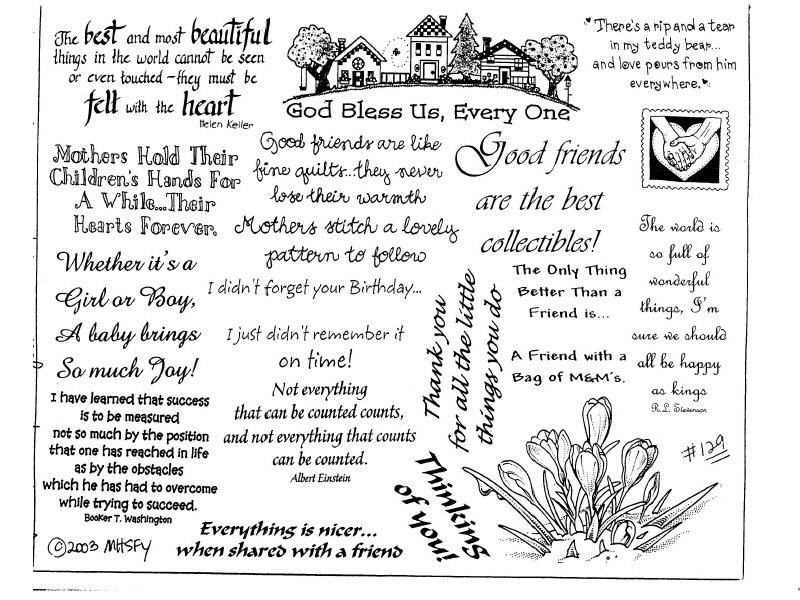 The best and most beautiful
things in the world cannot be seen
or even touched - they must be
felt with the heart
Helen Keller
God Bless Us, Every One
There's a rip and a tear
in my teddy bear...
and love pours from him
everywhere.
Mothers Hold Their
Children's Hands For
A While...Their
Hearts Forever.
Good friends are like
fine quilts...they never
lose their warmth
Mothers stitch a lovely
pattern to follow
Good friends
are the best
collectibles!
The world is
so full of
wonderful
things, I'm
sure we should
all be happy
as kings
R.L. Stevenson
Whether it's a
Girl or Boy,
A baby brings
So much Joy!
I didn't forget your Birthday...
I just didn't remember it
on time!
Thank you
for all the little
things you do
The Only Thing
Better Than a
Friend is...
A Friend with a
Bag of M&M's.
I have learned that success
is to be measured
not so much by the position
that one has reached in life
as by the obstacles
which he has had to overcome
while trying to succeed.
Booker T. Washington
Not everything
that can be counted counts,
and not everything that counts
can be counted.
Albert Einstein
Thinking
of you!
#129
©2003 MHSFY
Everything is nicer...
when shared with a friend